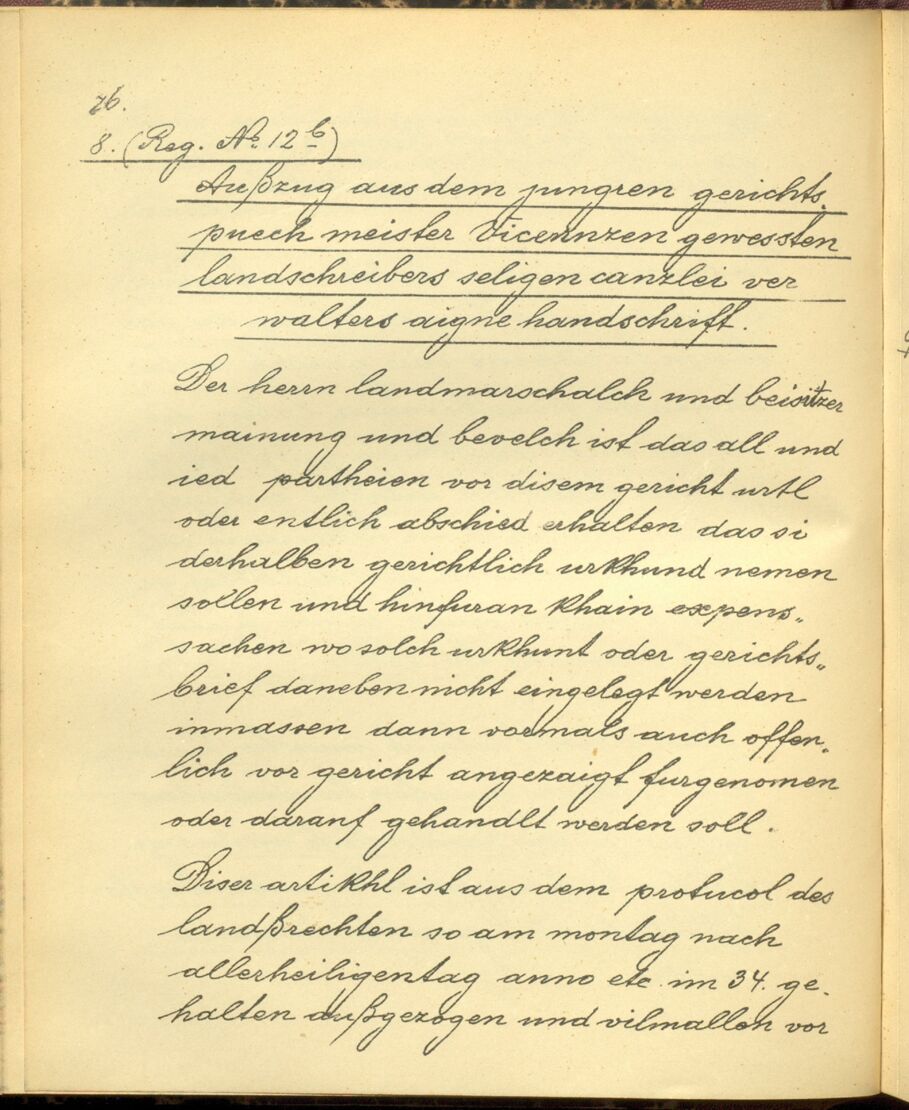 76.
8. (Reg. No. 12 b)
Außzug aus dem jungren gerichts„
puech meister Vicennzen gewessten
landschreibers seligen canzlei ver
walters aigne handschrift.
Der herrn landmarschalch und beisitzer
mainung und bevelch ist das all und
ied partheien vor disem gericht urtl
oder entlich abschied erhalten das si
derhalben gerichtlich urkhund nemen
sollen und hinfuran khain expens„
sachen wo solch urkhunt oder gerichts„
brief daneben nicht eingelegt werden
inmassen dann vormals auch offen„
lich vor gericht angezaigt furgenomen
oder darauf gehandlt werden soll.
Diser artikhl ist aus dem protucol des
landßrechten so am montag nach
allerheiligentag anno etc. im 34. ge-
halten außgezogen und vilmallen vor